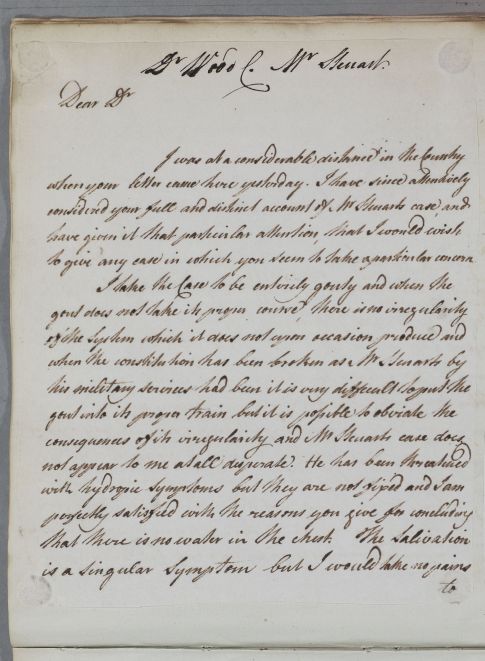 Dr Wood C. Mr Steuart.
Dear Dr
I was at a considerable distance in the Country
when your letter came here yesterday. I have since attentively
considered your full and distinct account of Mr Steuarts case, and
have given it that particular attention, that I would wish
to give any case in which you seem to take a particular concern
I take the Case to be entirely gouty and when the
gout does not take its proper course, there is no irregularity
of the System which it does not upon occasion produce and
when the constitution has been broken as Mr Steuarts by
his military services had been it is very difficult to put the
gout into its proper train but it is possible to obviate the
consequences of its irregularity and Mr Steuarts case does
not appear to me at all desperate. He has been threatened
with hydropic symptoms but they are not fixed and I am
perfectly satisfied with the reasons you give for concluding
that there is no water in the chest The Salivation
is a singular Symptom but I would take no pains
to